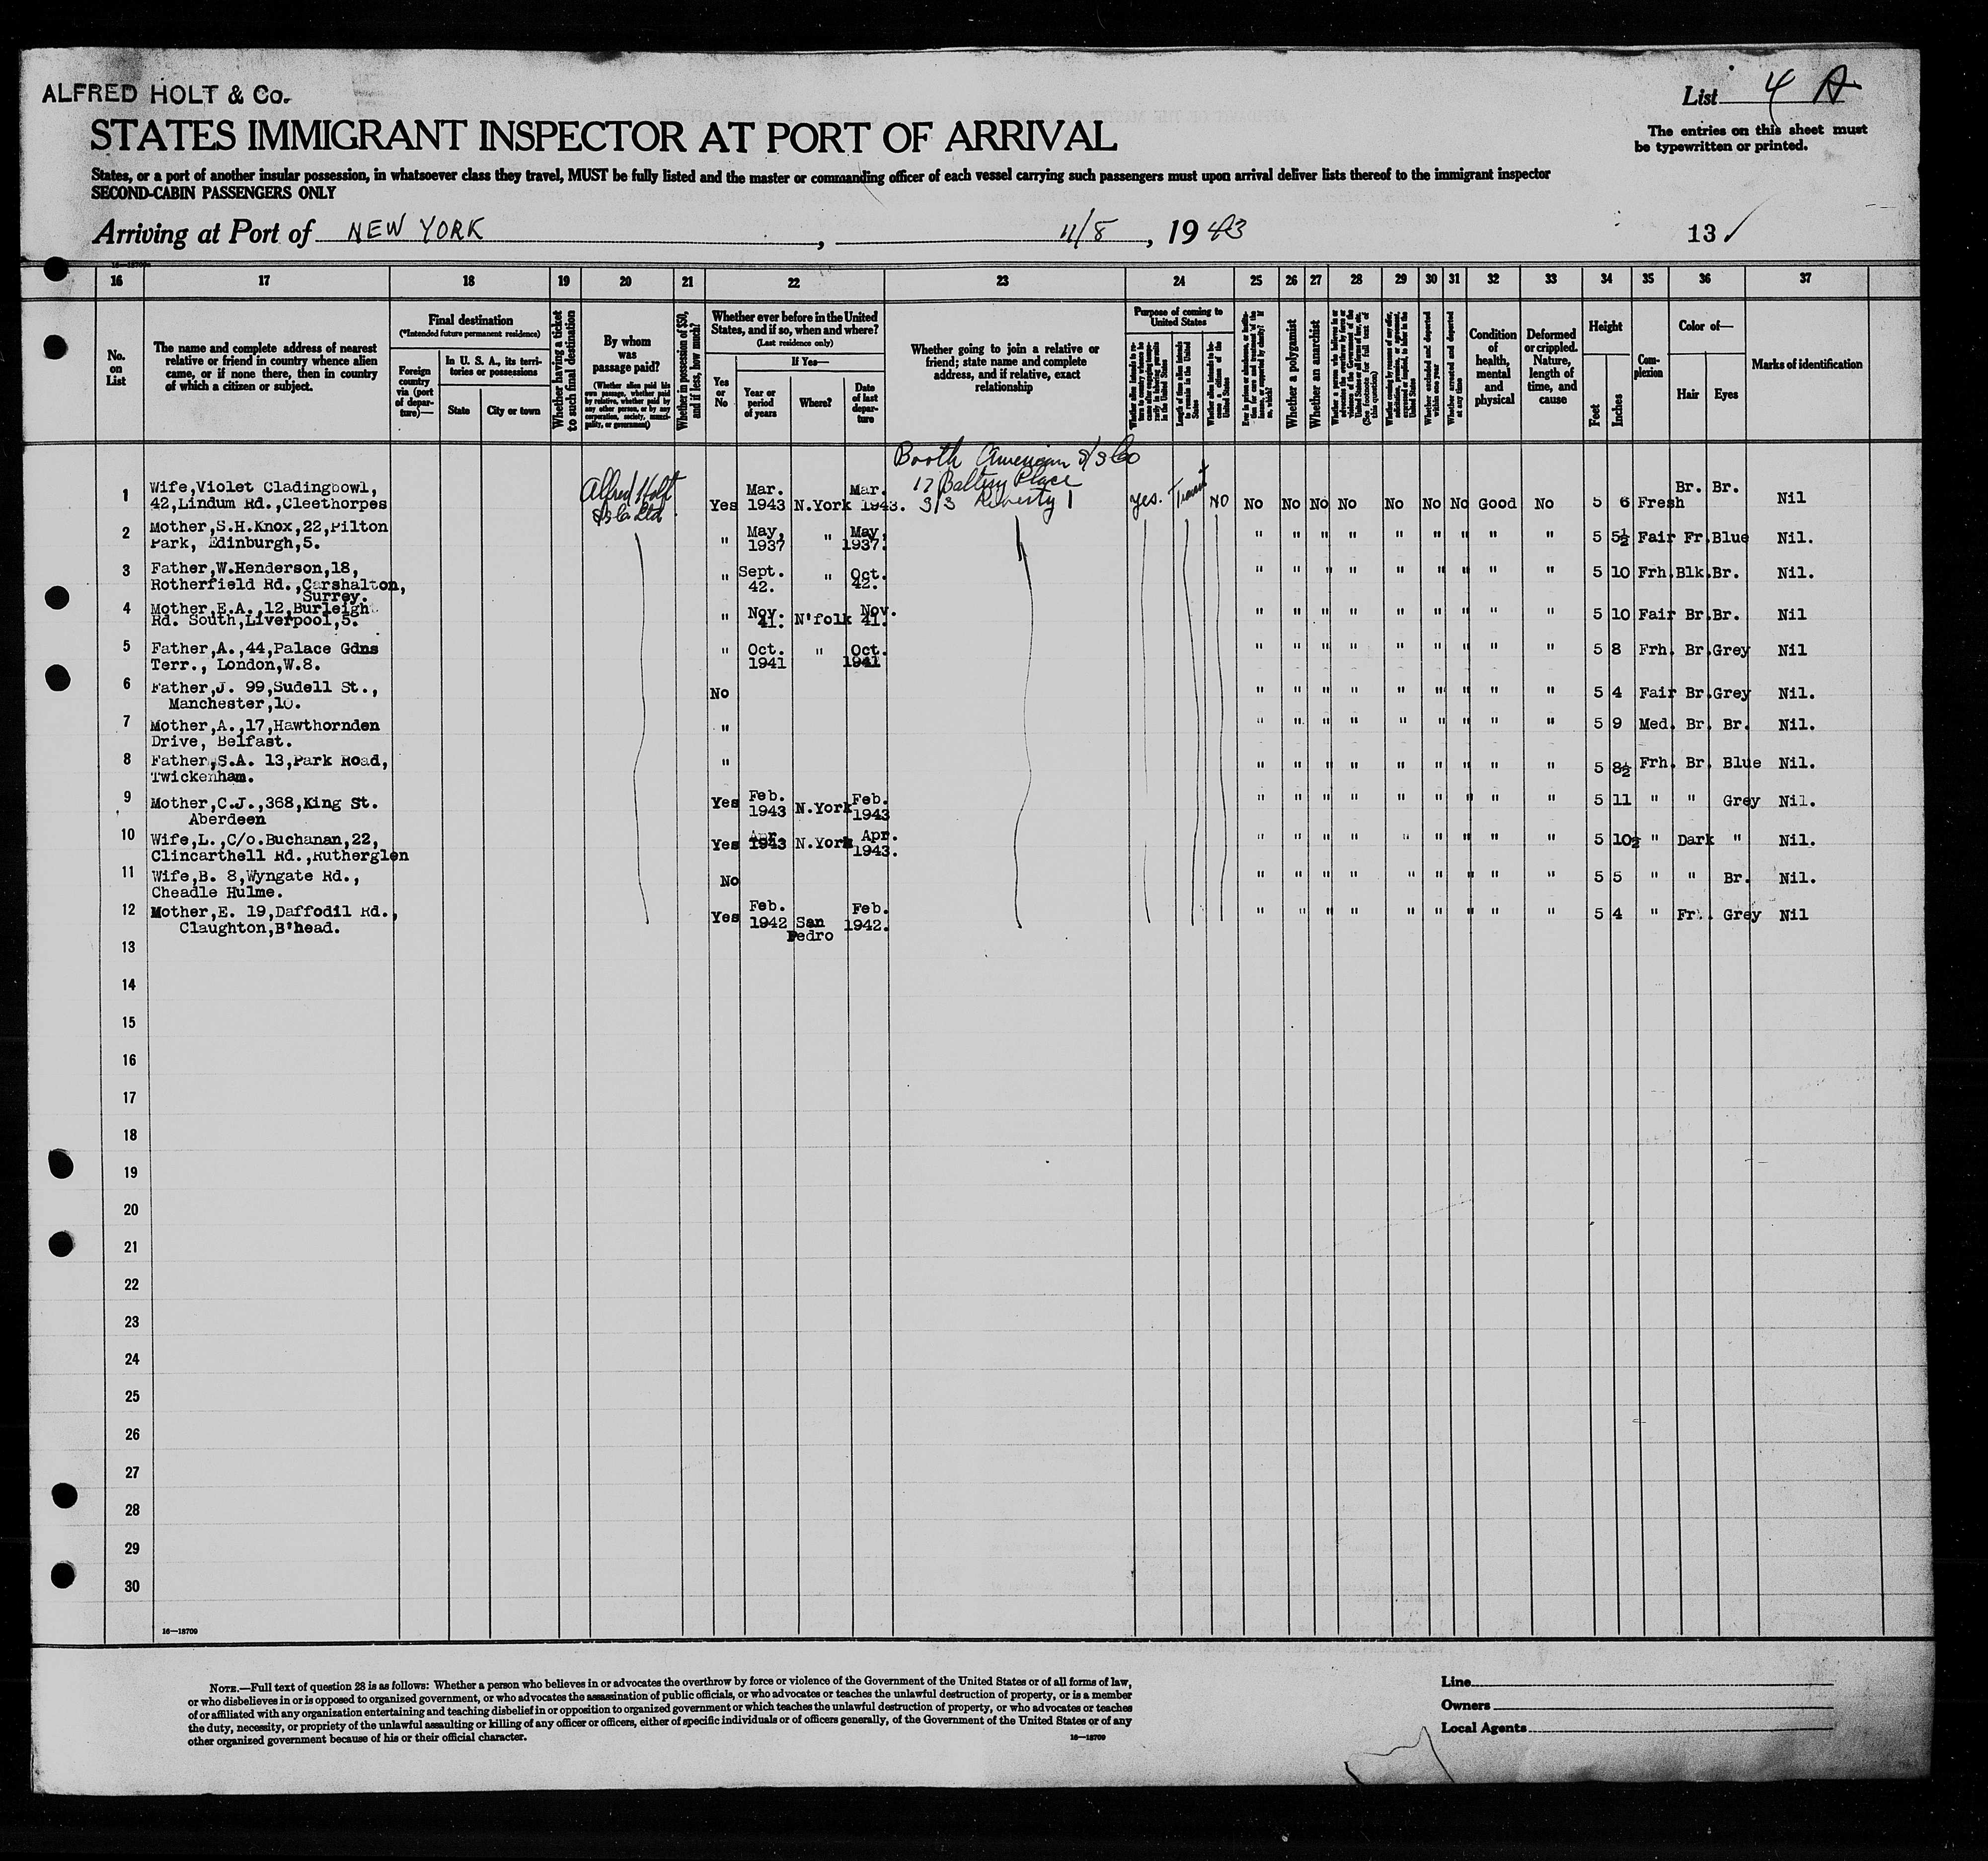 ALFRED HOLT & Co.
List 4 A
STATES IMMIGRANT INSPECTOR AT PORT OF ARRIVAL
The entries on this sheet must
be typewritten or printed.
States, or a port of another insular possession, in whatsoever class they travel, MUST be fully listed and the master or commanding officer of each vessel carrying such passengers must upon arrival deliver lists thereof to the immigrant inspector
SECOND-CABIN PASSENGERS ONLY
Arriving at Port of NEW YORK, 11/8, 1943 13 ✓
16 17 18 19 20 21 22 23 24 25 26 27 28 29 30 31 32 33 34 35 36 37
No.
on
List
The name and complete address of nearest
relative or friend in country whence alien
came, or if none there, then in country
of which a citizen or subject.
Final destination
(*Intended future permanent residence)
Foreign
country
via (port
of depar-
ture)—
In U. S. A., its terri-
tories or possessions
State
City or town
Whether having a ticket
to such final destination
By whom
was
passage paid?
(Whether alien paid his
own passage, whether paid
by relative, whether paid by
any other person, or by any
corporation, society, munici-
pality, or government)
Whether in possession of $50,
and if less, how much?
Whether ever before in the United
States, and if so, when and where?
(Last residence only)
Yes
or
No
If Yes—
Year or
period
of years
Where?
Date
of last
depar-
ture
Whether going to join a relative or
friend; state name and complete
address, and if relative, exact
relationship
Purpose of coming to
United States
Length of time alien intends
to remain in the United
States
Whether alien intends to be-
come a citizen of the
United States
Whether a polygamist
Whether an anarchist
(See footnote for full text of
this question)
Whether excluded and deported
within one year
Whether arrested and deported
at any time
Condition
of
health,
mental
and
physical
Deformed
or crippled.
Nature,
length of
time, and
cause
Height
Feet
Inches
Com-
plexion
Color of—
Hair
Eyes
Marks of identification
Booth American S/S Co
17 Battery Place
S/S Liberty 1
Alfred Holt
& Co. Ltd.
1 Wife,Violet Cladingbowl,
42,Lindum Rd.,Cleethorpes Yes Mar. 1943 N.York Mar. 1943. Yes. Transit NO No No No No No No No Good No 5 6 Fresh Br. Br. Nil
2 Mother,S.H.Knox,22,Pilton
Park, Edinburgh,5. " May, 1937 " May, 1937. " " " " " " " " " 5 5½ Fair Fr. Blue Nil.
3 Father,W.Henderson,18,
Rotherfield Rd.,Carshalton,
Surrey. " Sept. 42. " Oct. 42. " " " " " " " " " 5 10 Frh. Blk. Br. Nil.
4 Mother,E.A.,12,Burleigh
Rd. South,Liverpool,5. " Nov. 41. N'folk Nov. 41. " " " " " " " " " 5 10 Fair Br. Br. Nil
5 Father,A.,44,Palace Gdns
Terr., London,W.8. " Oct. 1941 " Oct. 1941 " " " " " " " " " 5 8 Frh. Br. Grey Nil
6 Father,J. 99,Sudell St.,
Manchester,10. No " " " " " " " " " 5 4 Fair Br. Grey Nil.
7 Mother,A.,17,Hawthornden
Drive, Belfast. " " " " " " " " " " 5 9 Med. Br. Br. Nil.
8 Father,S.A. 13,Park Road,
Twickenham. " " " " " " " " " " 5 8½ Frh. Br. Blue Nil.
9 Mother,C.J.,368,King St.
Aberdeen Yes Feb. 1943 N.York Feb. 1943 " " " " " " " " " 5 11 " " Grey Nil.
10 Wife,L.,C/o.Buchanan,22,
Clincarthell Rd.,Rutherglen Yes Apr. 1943 N.York Apr. 1943. " " " " " " " " " 5 10½ " Dark " Nil.
11 Wife,B. 8,Wyngate Rd.,
Cheadle Hulme. No " " " " " " " " " 5 5 " " Br. Nil.
12 Mother,E. 19,Daffodil Rd.,
Claughton,B'head. Yes Feb. 1942 San Pedro Feb. 1942. " " " " " " " " " 5 4 " Fr. Grey Nil
13
14
15
16
17
18
19
20
21
22
23
24
25
26
27
28
29
30
16—18709
NOTE.—Full text of question 28 is as follows: Whether a person who believes in or advocates the overthrow by force or violence of the Government of the United States or of all forms of law,
or who disbelieves in or is opposed to organized government, or who advocates the assassination of public officials, or who advocates or teaches the unlawful destruction of property, or is a member
of or affiliated with any organization entertaining and teaching disbelief in or opposition to organized government or which teaches the unlawful destruction of property, or who advocates or teaches
the duty, necessity, or propriety of the unlawful assaulting or killing of any officer or officers, either of specific individuals or of officers generally, of the Government of the United States or of any
other organized government because of his or their official character.
16—18709
Line
Owners
Local Agents